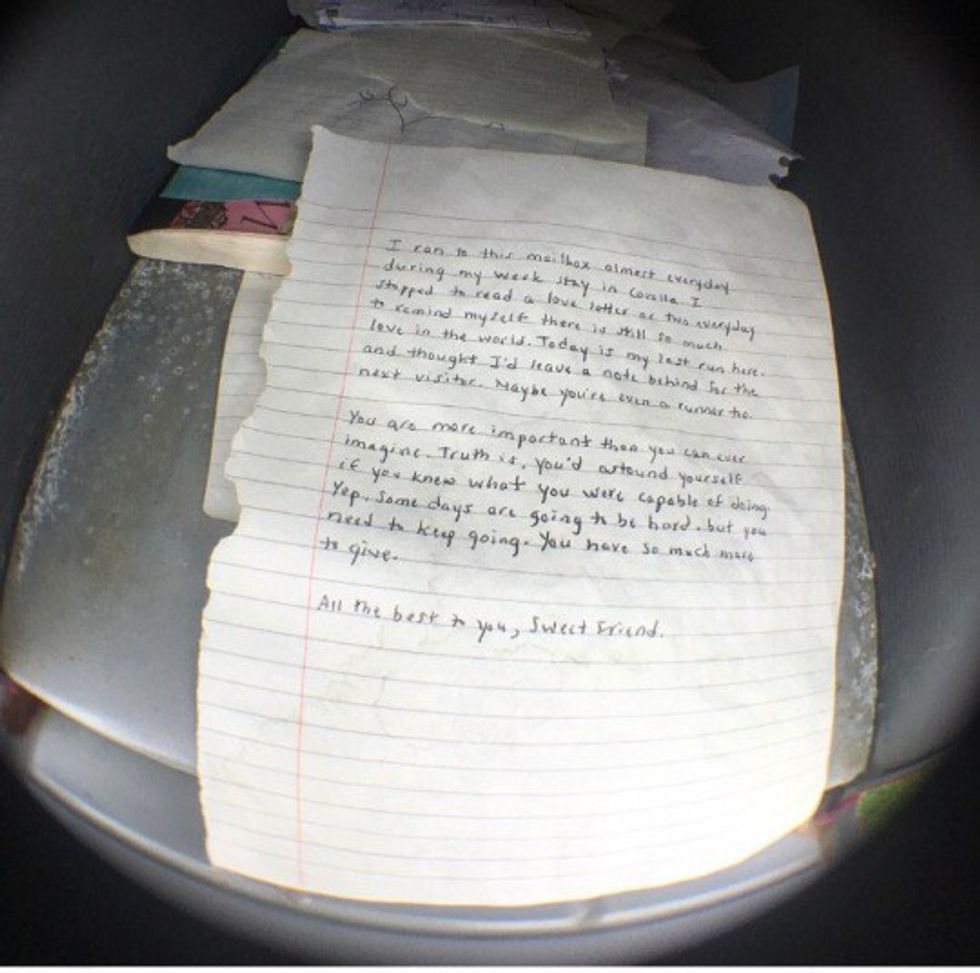 I ran to this mailbox almost everyday
during my week stay in Corolla. I
stopped to read a love letter or two everyday
to remind myself there is still so much
love in the world. Today is my last run here.
and thought I'd leave a note behind for the
next visitor. Maybe you're even a runner too.
You are more important than you can ever
imagine. Truth is, you'd astound yourself
if you knew what you were capable of doing.
Yep, some days are going to be hard. but you
need to keep going. You have so much more
to give.
All the best to you, Sweet friend.